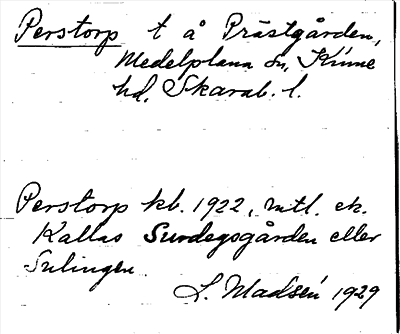 Perstorp t å Prästgården,
Medelplana sn, Kinne
hd, Skarab. l.
Perstorp kb. 1922, mtl. ek.
Kallas Surdegsgården eller
Sulingen.
L. Madsén 1929